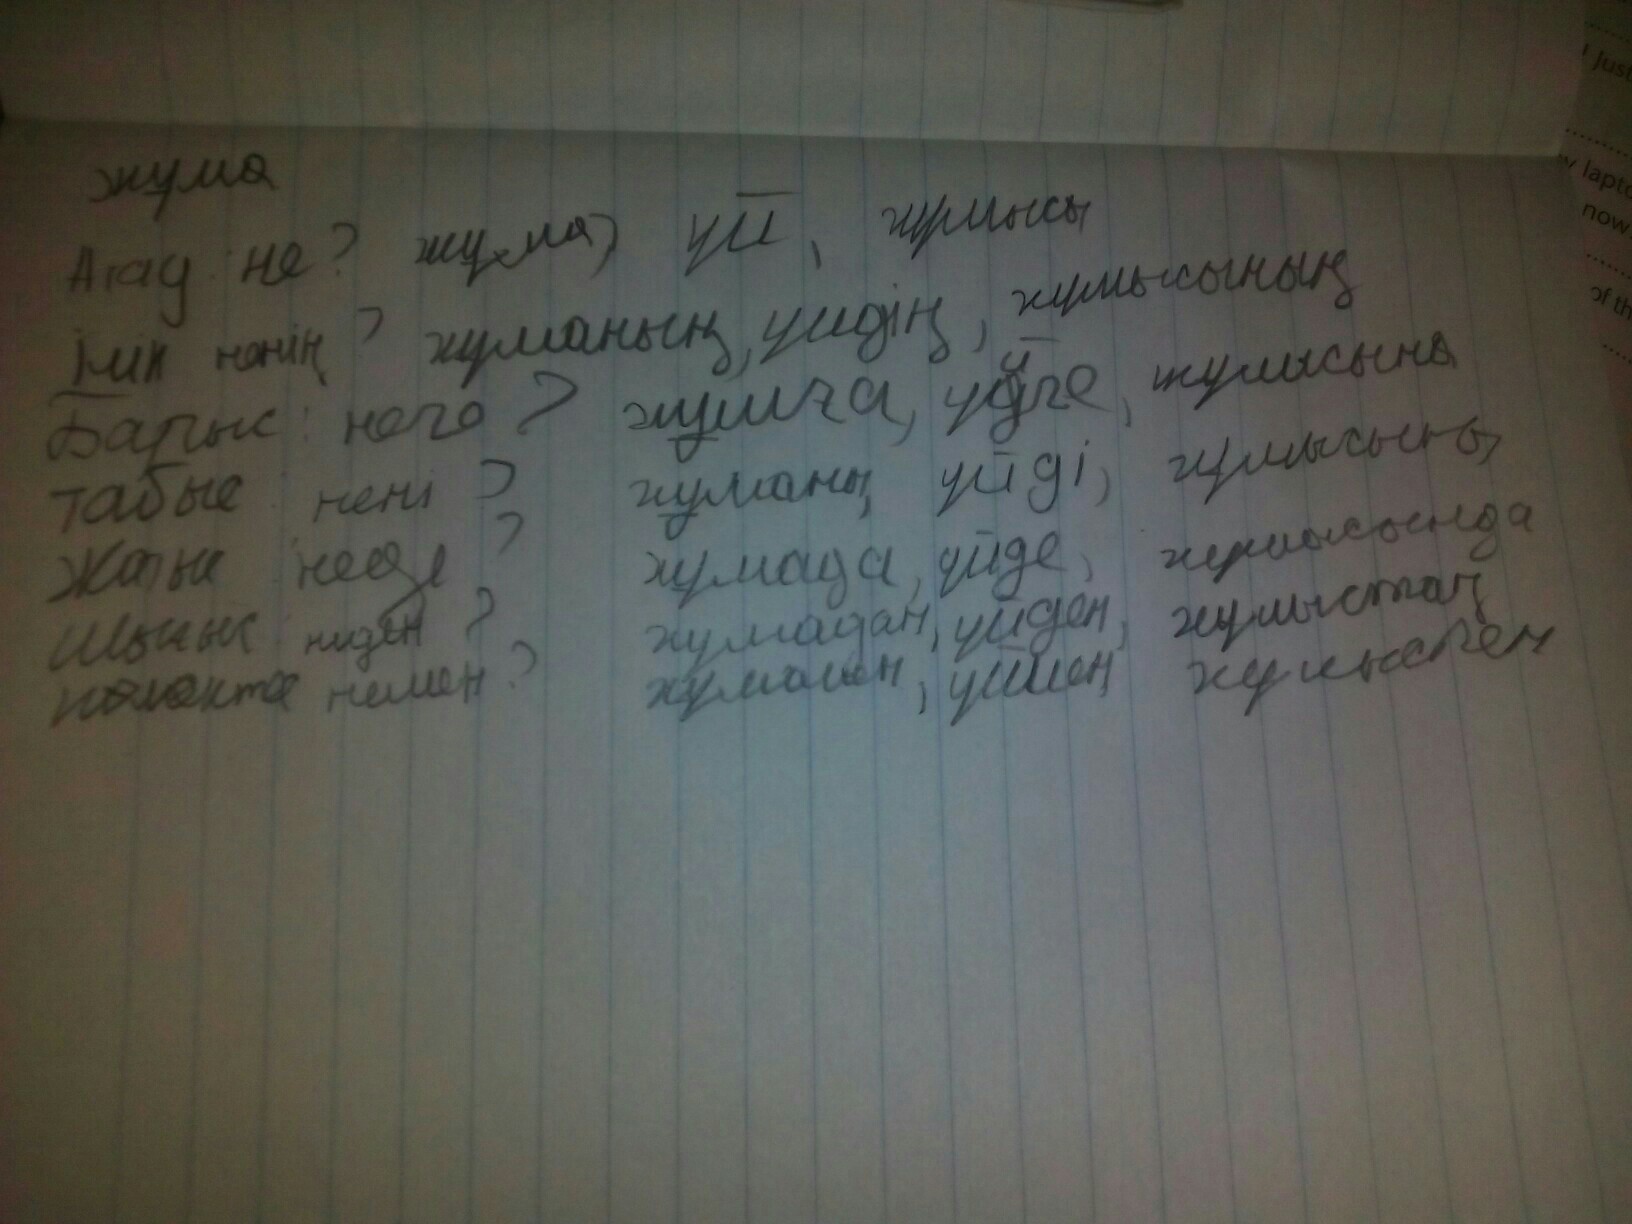 жұма
Атау не? жұма, үй, жұмысы
Ілік ненің? жұманың, үйдің, жұмысының
Барыс: неге? жұмға, үйге, жұмысына
табыс нені? жұманы, үйді, жұмысыны,
Жатыс неде? жұмада, үйде, жұмысында
Шығыс неден? жұмадан, үйден, жұмыстан
көмектес немен? жұмамен, үймен жұмыспен
Just
laptop
now
of th